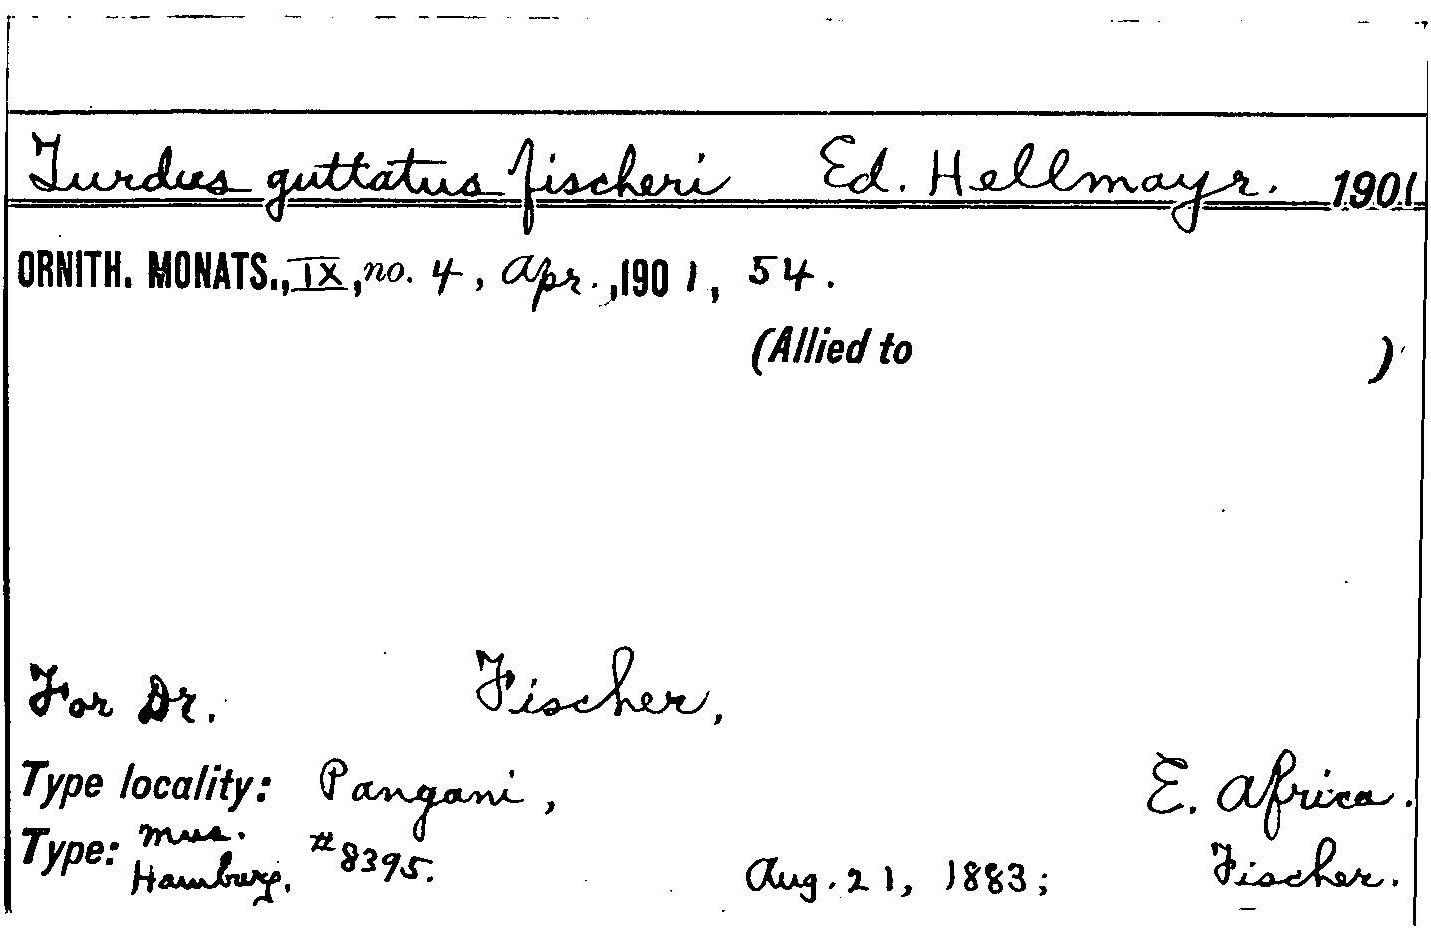 Turdus guttatus fischeri Ed. Hellmayr. 1901
ORNITH. MONATS., IX, no. 4, Apr., 1901, 54.
(Allied to )
For Dr. Fischer,
Type locality: Pangani, E. Africa.
Type: Mus. Hamburg. #8395. Aug. 21, 1883; Fischer.